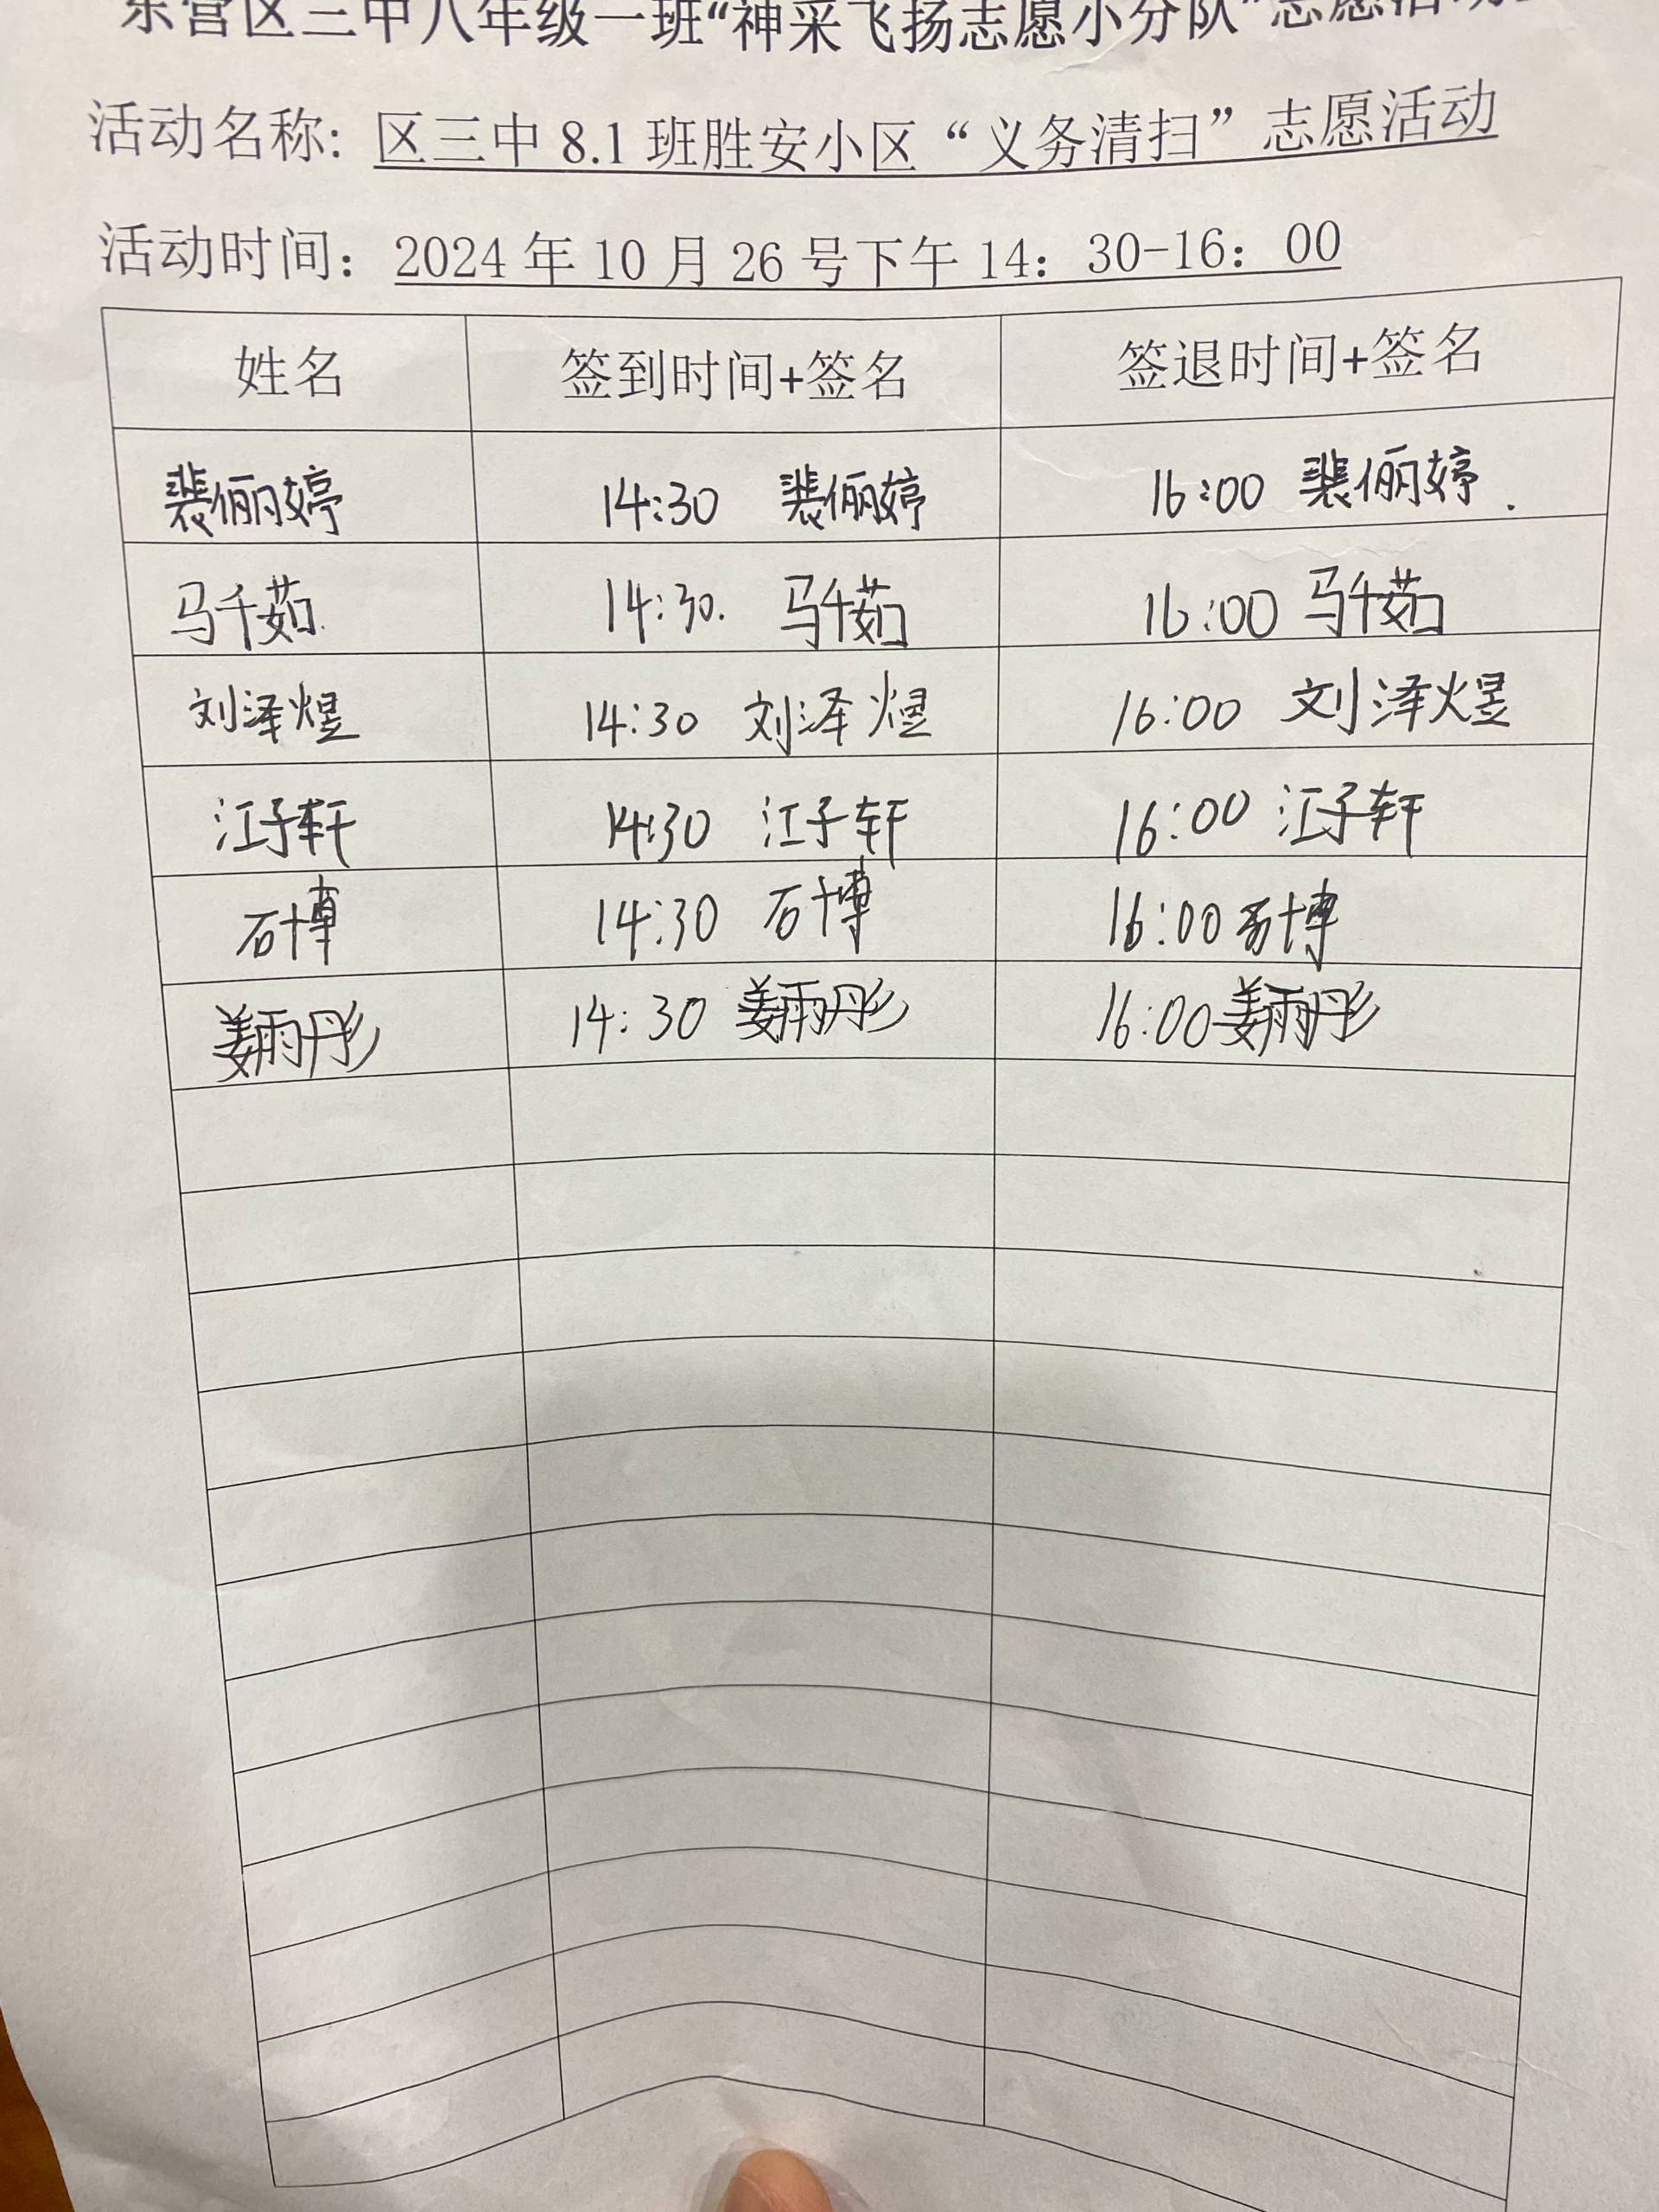 东营区三中八年级一班“神采飞扬志愿小分队”志愿活动
活动名称: 区三中 8.1 班胜安小区“义务清扫”志愿活动
活动时间: 2024 年 10 月 26 号下午 14: 30-16: 00
姓名 签到时间+签名 签退时间+签名
裴俪婷 14:30 裴俪婷 16:00 裴俪婷.
马千茹. 14:30. 马千茹 16:00 马千茹
刘泽煜 14:30 刘泽煜 16:00 刘泽煜
江子轩 14:30 江子轩 16:00 江子轩
石博 14:30 石博 16:00 石博
姜雨彤 14:30 姜雨彤 16:00 姜雨彤